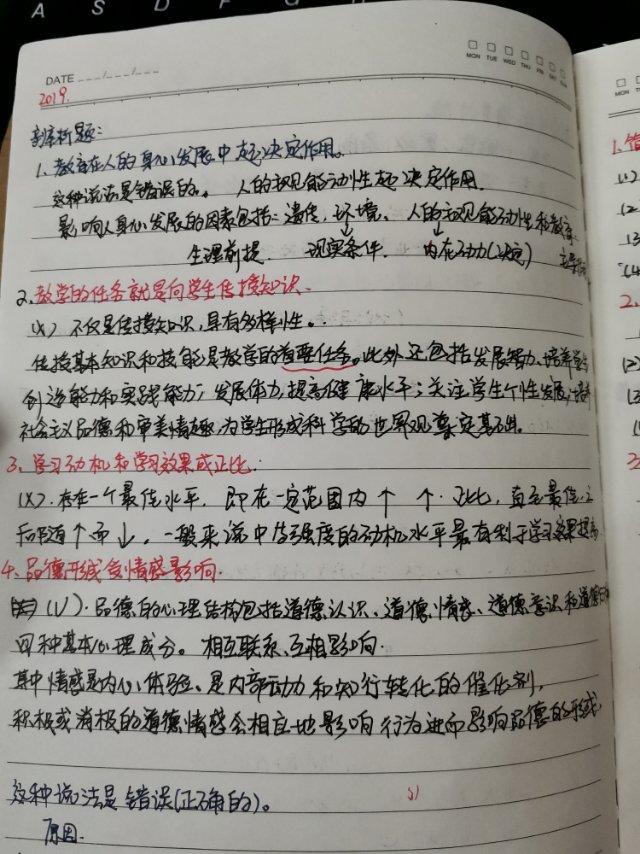 A S D F G
DATE
MON TUE WED THU FRI SAT SUN
2019.
辨析题:
1、教育在人的身心发展中起决定作用。
这种说法是错误的。 人的主观能动性起决定作用.
影响人身心发展的因素包括: 遗传, 环境、人的主观能动性和教育.
生理前提. 现实条件. 内在动力(决定)
2、教学的任务就是向学生传授知识.
(X) 不仅是传授知识,具有多样性。
传授基本知识和技能是教学的首要任务。此外还包括发展智力、培养学生
创造能力和实践能力; 发展体力,提高健康水平; 关注学生个性发展, 培养
社会主义品德和审美情趣,为学生形成科学的世界观奠定基础.
3、学习动机和学习效果成正比.
(X). 存在一个最佳水平. 即在一定范围内↑ ↑. 正比, 直至最佳.之
后随↑而↓. 一般来说中等强度的动机水平最有利于学习效果提高
4、品德形成受情感影响.
(√). 品德的心理结构包括道德认识、道德情感、道德意识和道德
四种基本心理成分。相互联系、互相影响.
其中情感是内心体验、是内部动力和知行转化的催化剂,
积极或消极的道德情感会相应地影响行为进而影响品德的形成
这种说法是错误(正确的)。
原因.
MON TU
1、简
(1)
(2
(3
(4
2、
(2)
(3